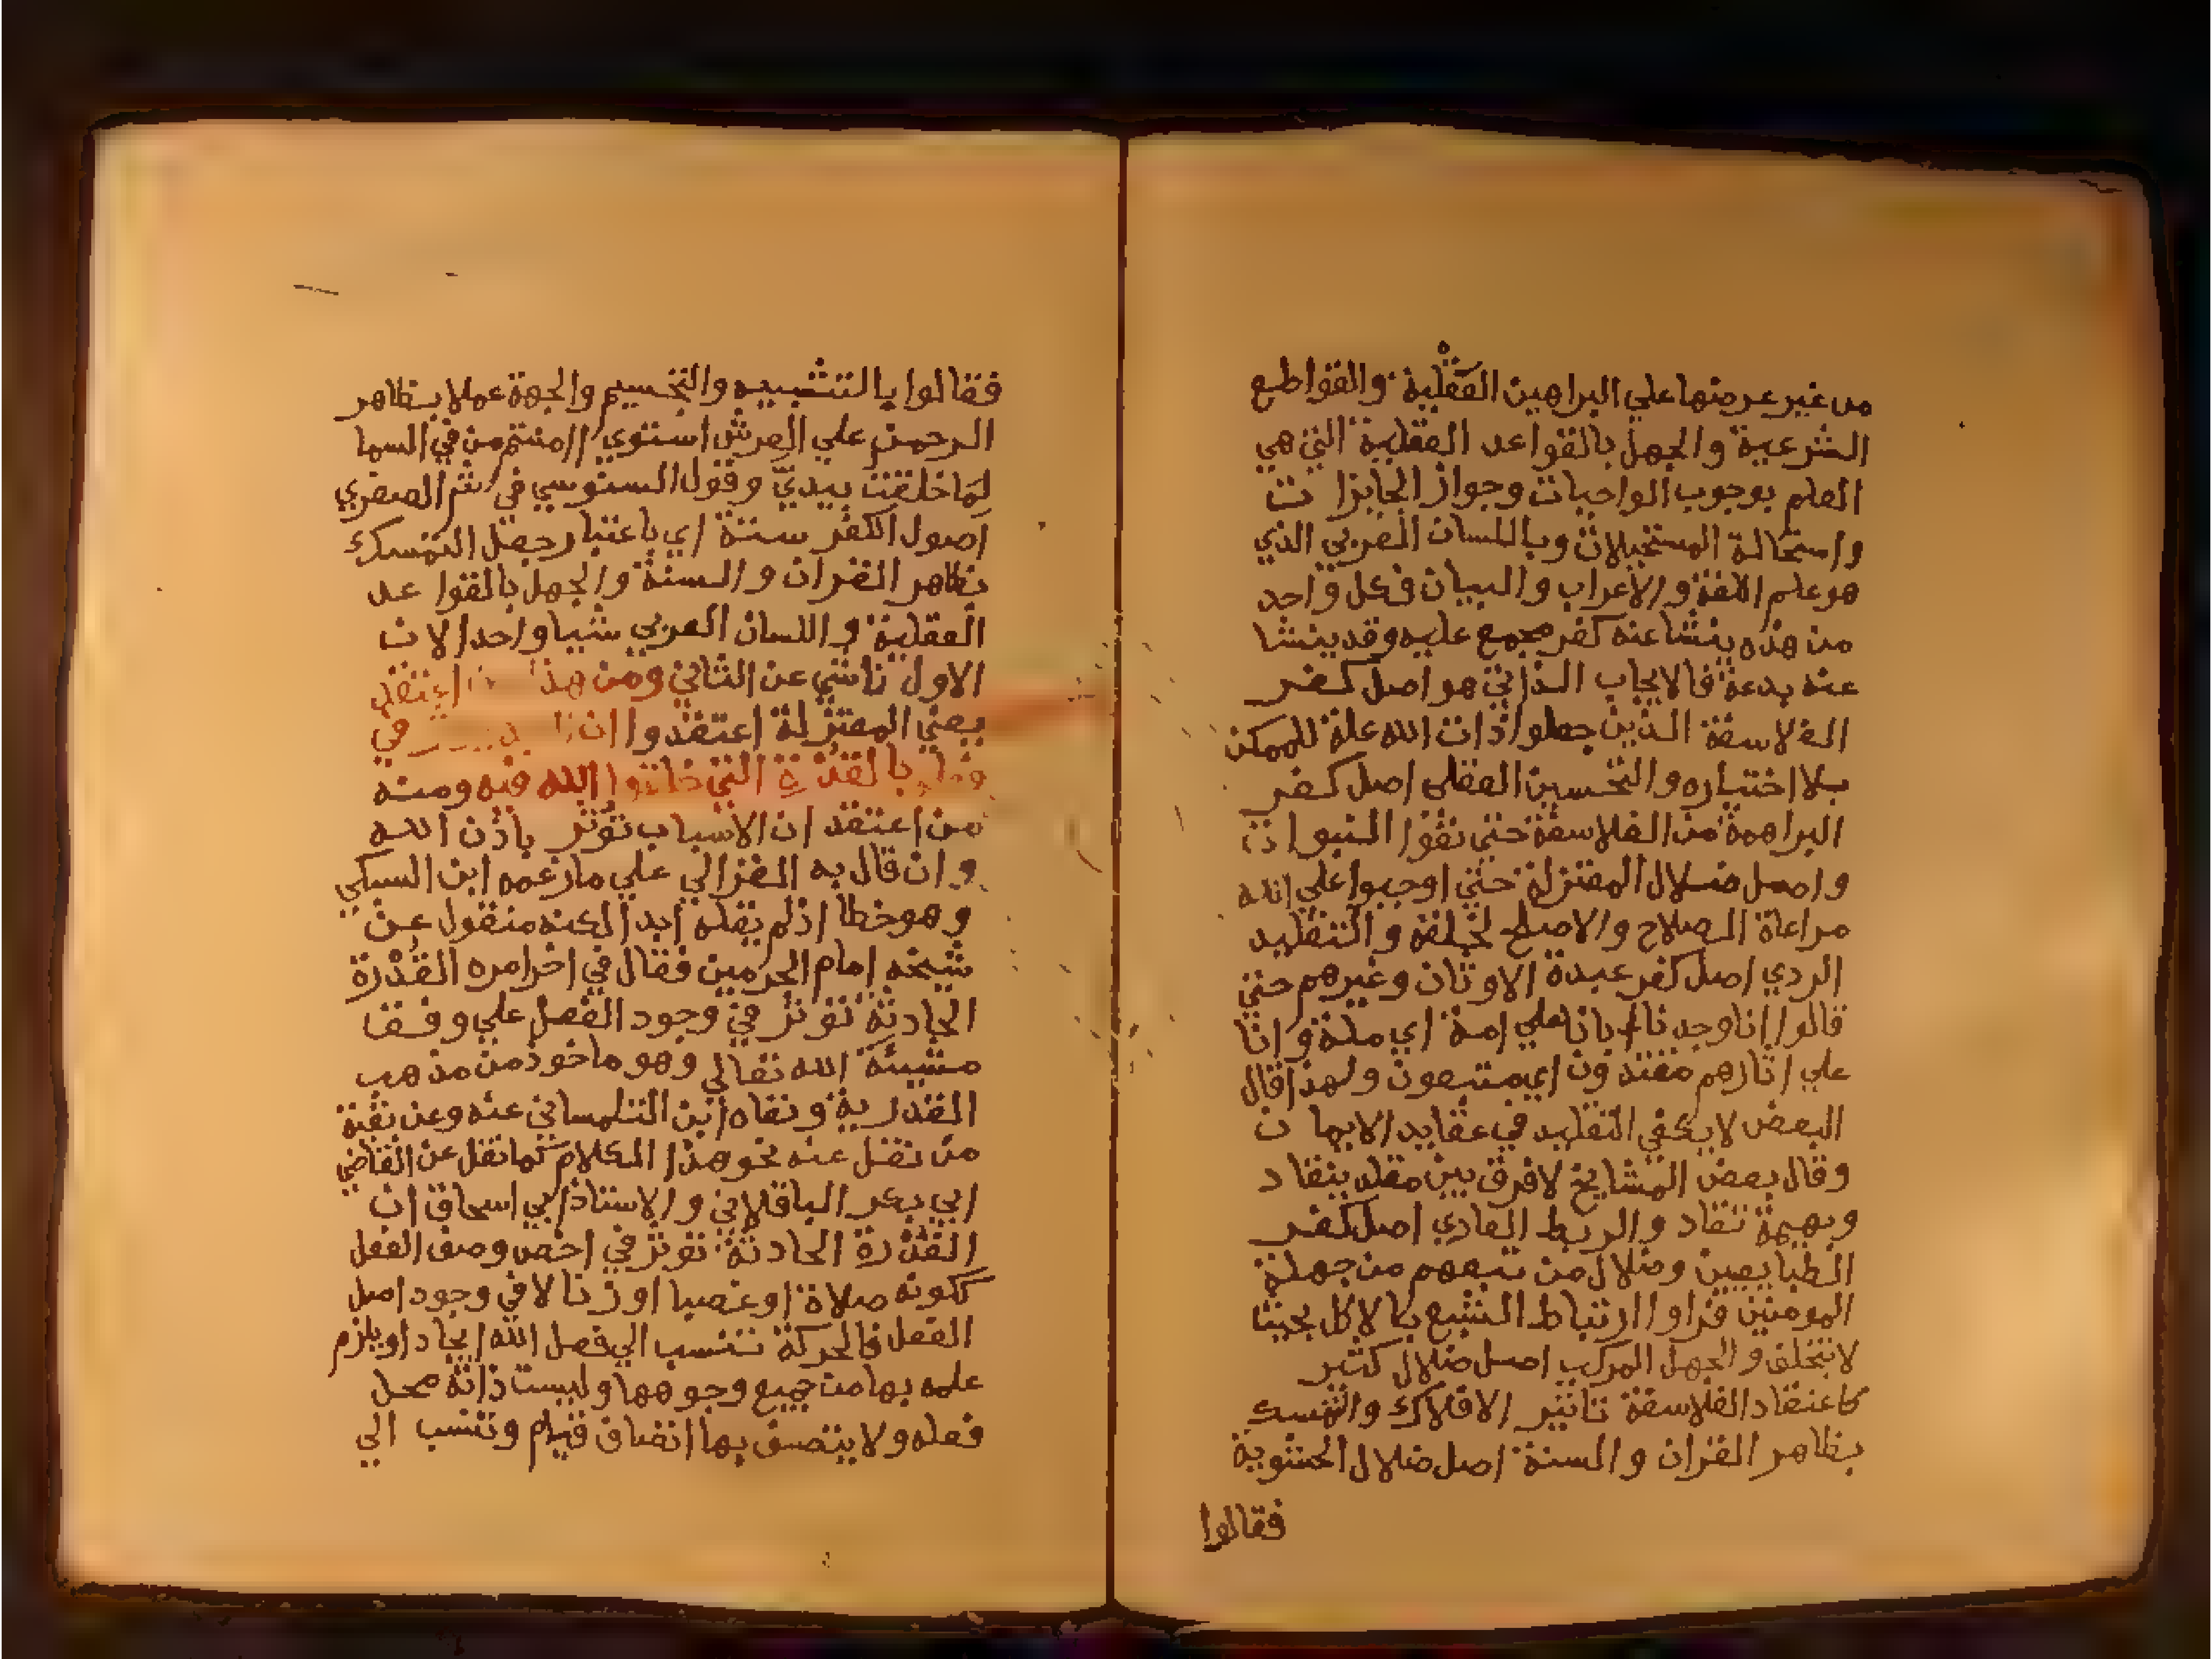 من غير عرضها علي البراهين العقلية والقواطع
الشرعية والجهل بالقواعد العقلية التي هي
العلم بوجوب الواجبات وجواز الجايزا ت
واستحالة المستحيلات وباللسان العربي الذي
هو علم اللغة والاعراب والبيان فكل واحد
من هذه ينشا عنه كفر مجمع عليه وقد ينشا
عنه بدعة فالايجاب الذاتي هو اصل كفر
الفلاسفة الذين جعلوا ذات الله علة للممكن
بلا اختياره والتحسين العقلي اصل كفر
البراهمة من الفلاسفة حتي نفوا النبوا ت
واصل ضلال المعتزلة حتي اوجبوا علي الله
مراعاة الصلاح والاصلح لخلقه والتقليد
الردي اصل كفر عبدة الاوثان وغيرهم حتي
قالوا انا وجدنا ابانا علي امة اي ملة وانا
علي اثارهم مقتدون اي متبعون ولهذا قال
البعض لا يكفي التقليد في عقايد الايما ن
وقال بعض المشايخ لا فرق بين مقلد ينقاد
وبهيمة تقاد والربط العادي اصل كفر
الطبايعين وضلال من تبعهم من جهلة
المومنين فراوا ارتباط الشبع بالاكل بحيث
لا يتخلف والجهل المركب اصل ضلال كثير
كاعتقاد الفلاسفة تاثير الافلاك والتمسك
بظاهر القران والسنة اصل ضلال الحشوية
فقالوا
فقالوا بالتشبيه والتجسيم والجهة عملا بظاهر
الرحمن علي العرش استوي اامنتم من في السما
لما خلقت بيديّ وقول السنوسي في شر الصغري
اصول الكفر ستة اي باعتبار جعل التمسك
بظاهر القران والسنة والجهل بالقواعد
العقلية واللسان العربي شيا واحدا لا ن
الاول ناشي عن الثاني ومن هذا اعتقد
يعني المعتزلة اعتقدوا ان في
بالقدرة التي الله فيه ومنه
من اعتقد ان الاسباب تؤثر باذن الله
وان قال به الغزالي علي ما زعمه ابن السبكي
وهو خطا اذ لم يقله ابدا لكنه منقول عن
شيخه امام الحرمين فقال في اخر امره القُدْرة
الحادثة تؤثر في وجود الفعل علي وفق
مشيئة الله تعالي وهو ماخوذ من مذهب
القدرية ونفاه ابن التلمساني عنه وعن بقية
من نقل عنه نحو هذا الكلام كما نقل عن القاضي
ابي بكر الباقلاني والاستاذ ابي اسحاق ان
القدرة الحادثة توثر في اخص وصف الفعل
ككونه صلاة او غصبا او زنا لا في وجود اصل
الفعل فالحركة تنسب الي فعل الله ايجادا ويلزم
علمه بها من جميع وجوهها وليست ذاته محل
فعله ولا يتصف بها اتصاف قيام وتنسب الي